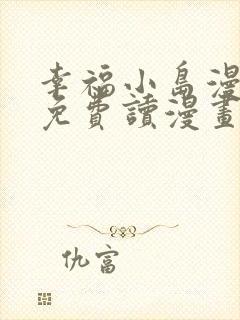 幸福小島漫
免費讀漫畫
仇富